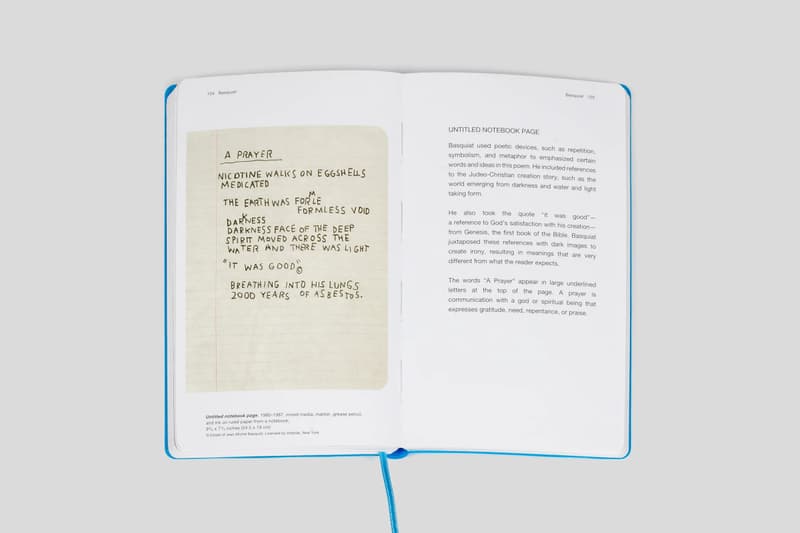 Basquiat
A PRAYER
NICOTINE WALKS ON EGGSHELLS
MEDICATED
THE EARTH WAS FORMLE
FORMLESS VOID
DARKNESS
DARKNESS FACE OF THE DEEP
SPIRIT MOVED ACROSS THE
WATER AND THERE WAS LIGHT
"IT WAS GOOD"©
BREATHING INTO HIS LUNGS
2000 YEARS OF ASBESTOS.
Untitled notebook page, 1980–1987, mixed media, marker, grease pencil,
and ink on ruled paper from a notebook,
© Estate of Jean-Michel Basquiat. Licensed by Artestar, New York
Basquiat
UNTITLED NOTEBOOK PAGE
Basquiat used poetic devices, such as repetition,
symbolism, and metaphor to emphasized certain
words and ideas in this poem. He included references
to the Judeo-Christian creation story, such as the
world emerging from darkness and water and light
taking form.
He also took the quote "it was good"—
a reference to God's satisfaction with his creation—
from Genesis, the first book of the Bible. Basquiat
juxtaposed these references with dark images to
create irony, resulting in meanings that are very
different from what the reader expects.
The words "A Prayer" appear in large underlined
letters at the top of the page. A prayer is
communication with a god or spiritual being that
expresses gratitude, need, repentance, or praise.